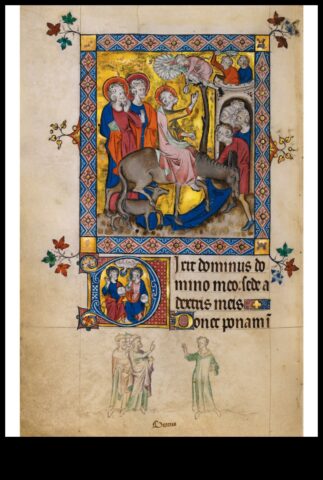 Dixit dominus do
mino meo. sede a
dextris meis
Donec ponam i